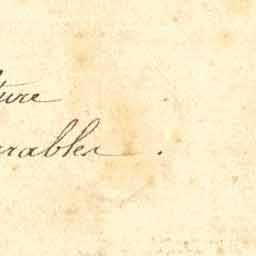 ture
rables.